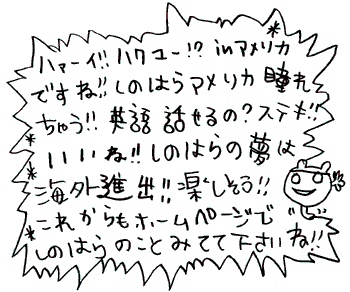 ハァーイ!! ハワユー!? in アメリカ
ですね!! しのはらアメリカ 憧れ
ちゃう!! 英語 話せるの? ステキ!!
いいね!! しのはらの夢は
海外進出!! 楽しそう!!
これからもホームページで
しのはらのことみてて下さいね!!